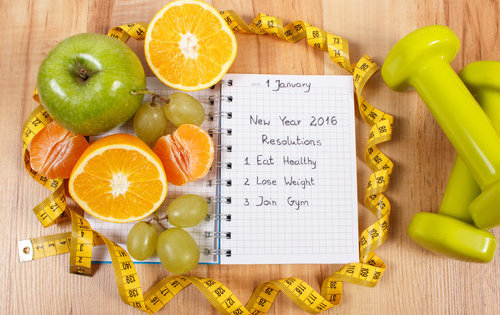 1 January
New Year 2016
Resolutions
1 Eat Healthy
2 Lose Weight
3 Join Gym